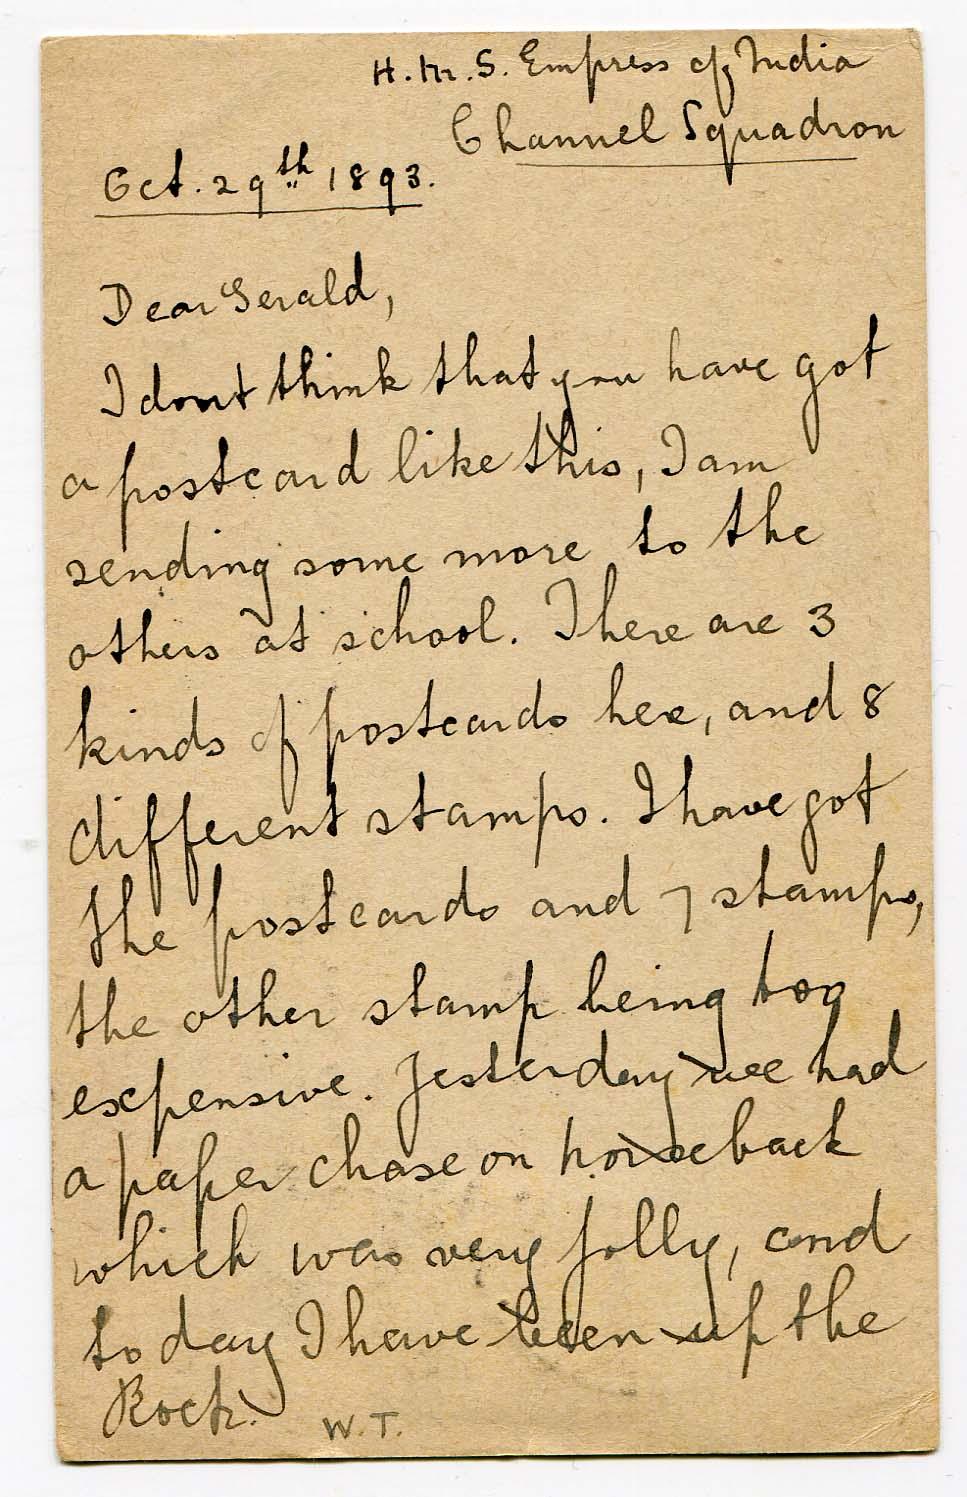 H.M.S. Empress of India
Channel Squadron
Oct. 29th 1893.
Dear Gerald,
I dont think that you have got
a postcard like this, I am
sending some more to the
others at school. There are 3
kinds of postcards here, and 8
different stamps. I have got
the postcards and 7 stamps,
the other stamp being too
expensive. Yesterday we had
a paper chase on horseback
which was very jolly, and
to day I have been up the
Rock.
W.T.